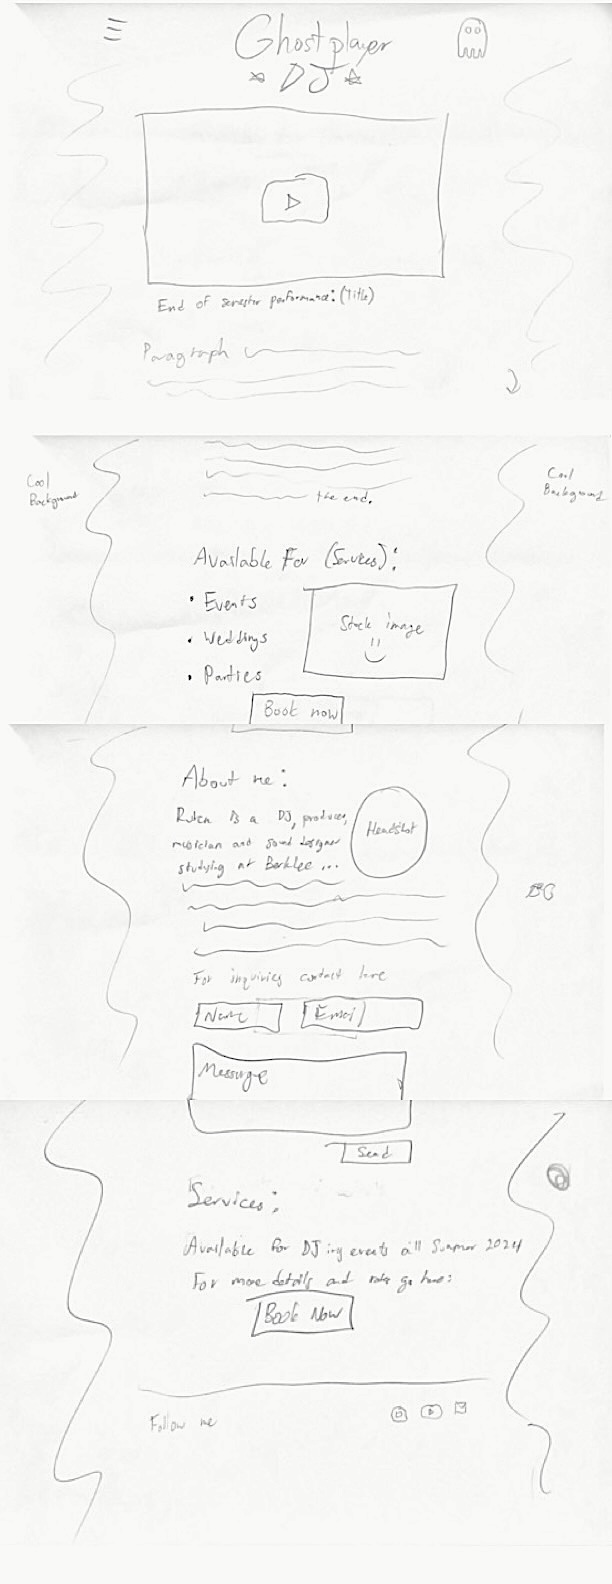 Ghostplayer
DJ
End of semester performance: (Title)
Paragraph
Cool
Background
Cool
Background
the end.
Available For (Services):
• Events
• Weddings
• Parties
Stock image
Book now
About me:
is a DJ, producer,
musician and sound designer
studying at Berklee ...
Headshot
For inquiries contact here
Name
Email
Message
Send
Services:
Available for DJing events all Summer 2024
For more details and rates go here:
Book Now
Follow me